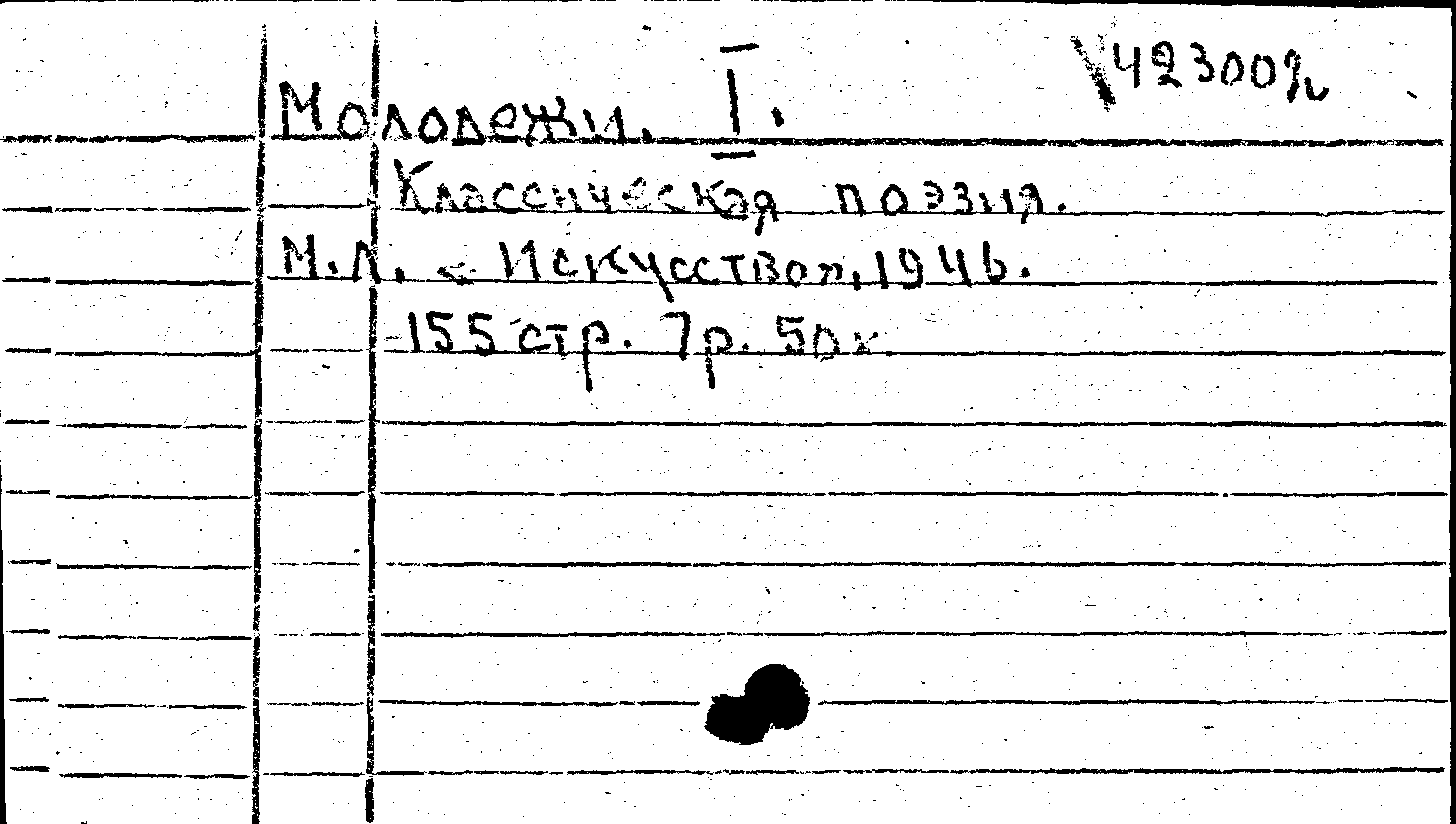 V42300л
Молодежи. I.
Классическая поэзия.
М.Л. «Искусство», 1946.
155 стр. 7р. 50к